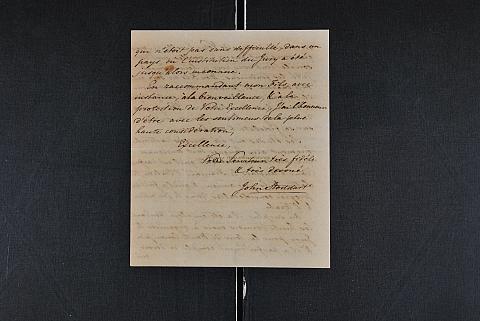 qui n'était pas sans difficulté, dans un
pays où l'institution du Jury a été
jusqu'alors inconnue.
En recommandant mon Fils avec
instance, à la bienveillance, & à la
protection de Votre Excellence, J'ai l'honneur
d'être avec les sentimens de la plus
haute considération,
Excellence,
Votre Serviteur très fidèle
& très dévoué,
John Stoddart